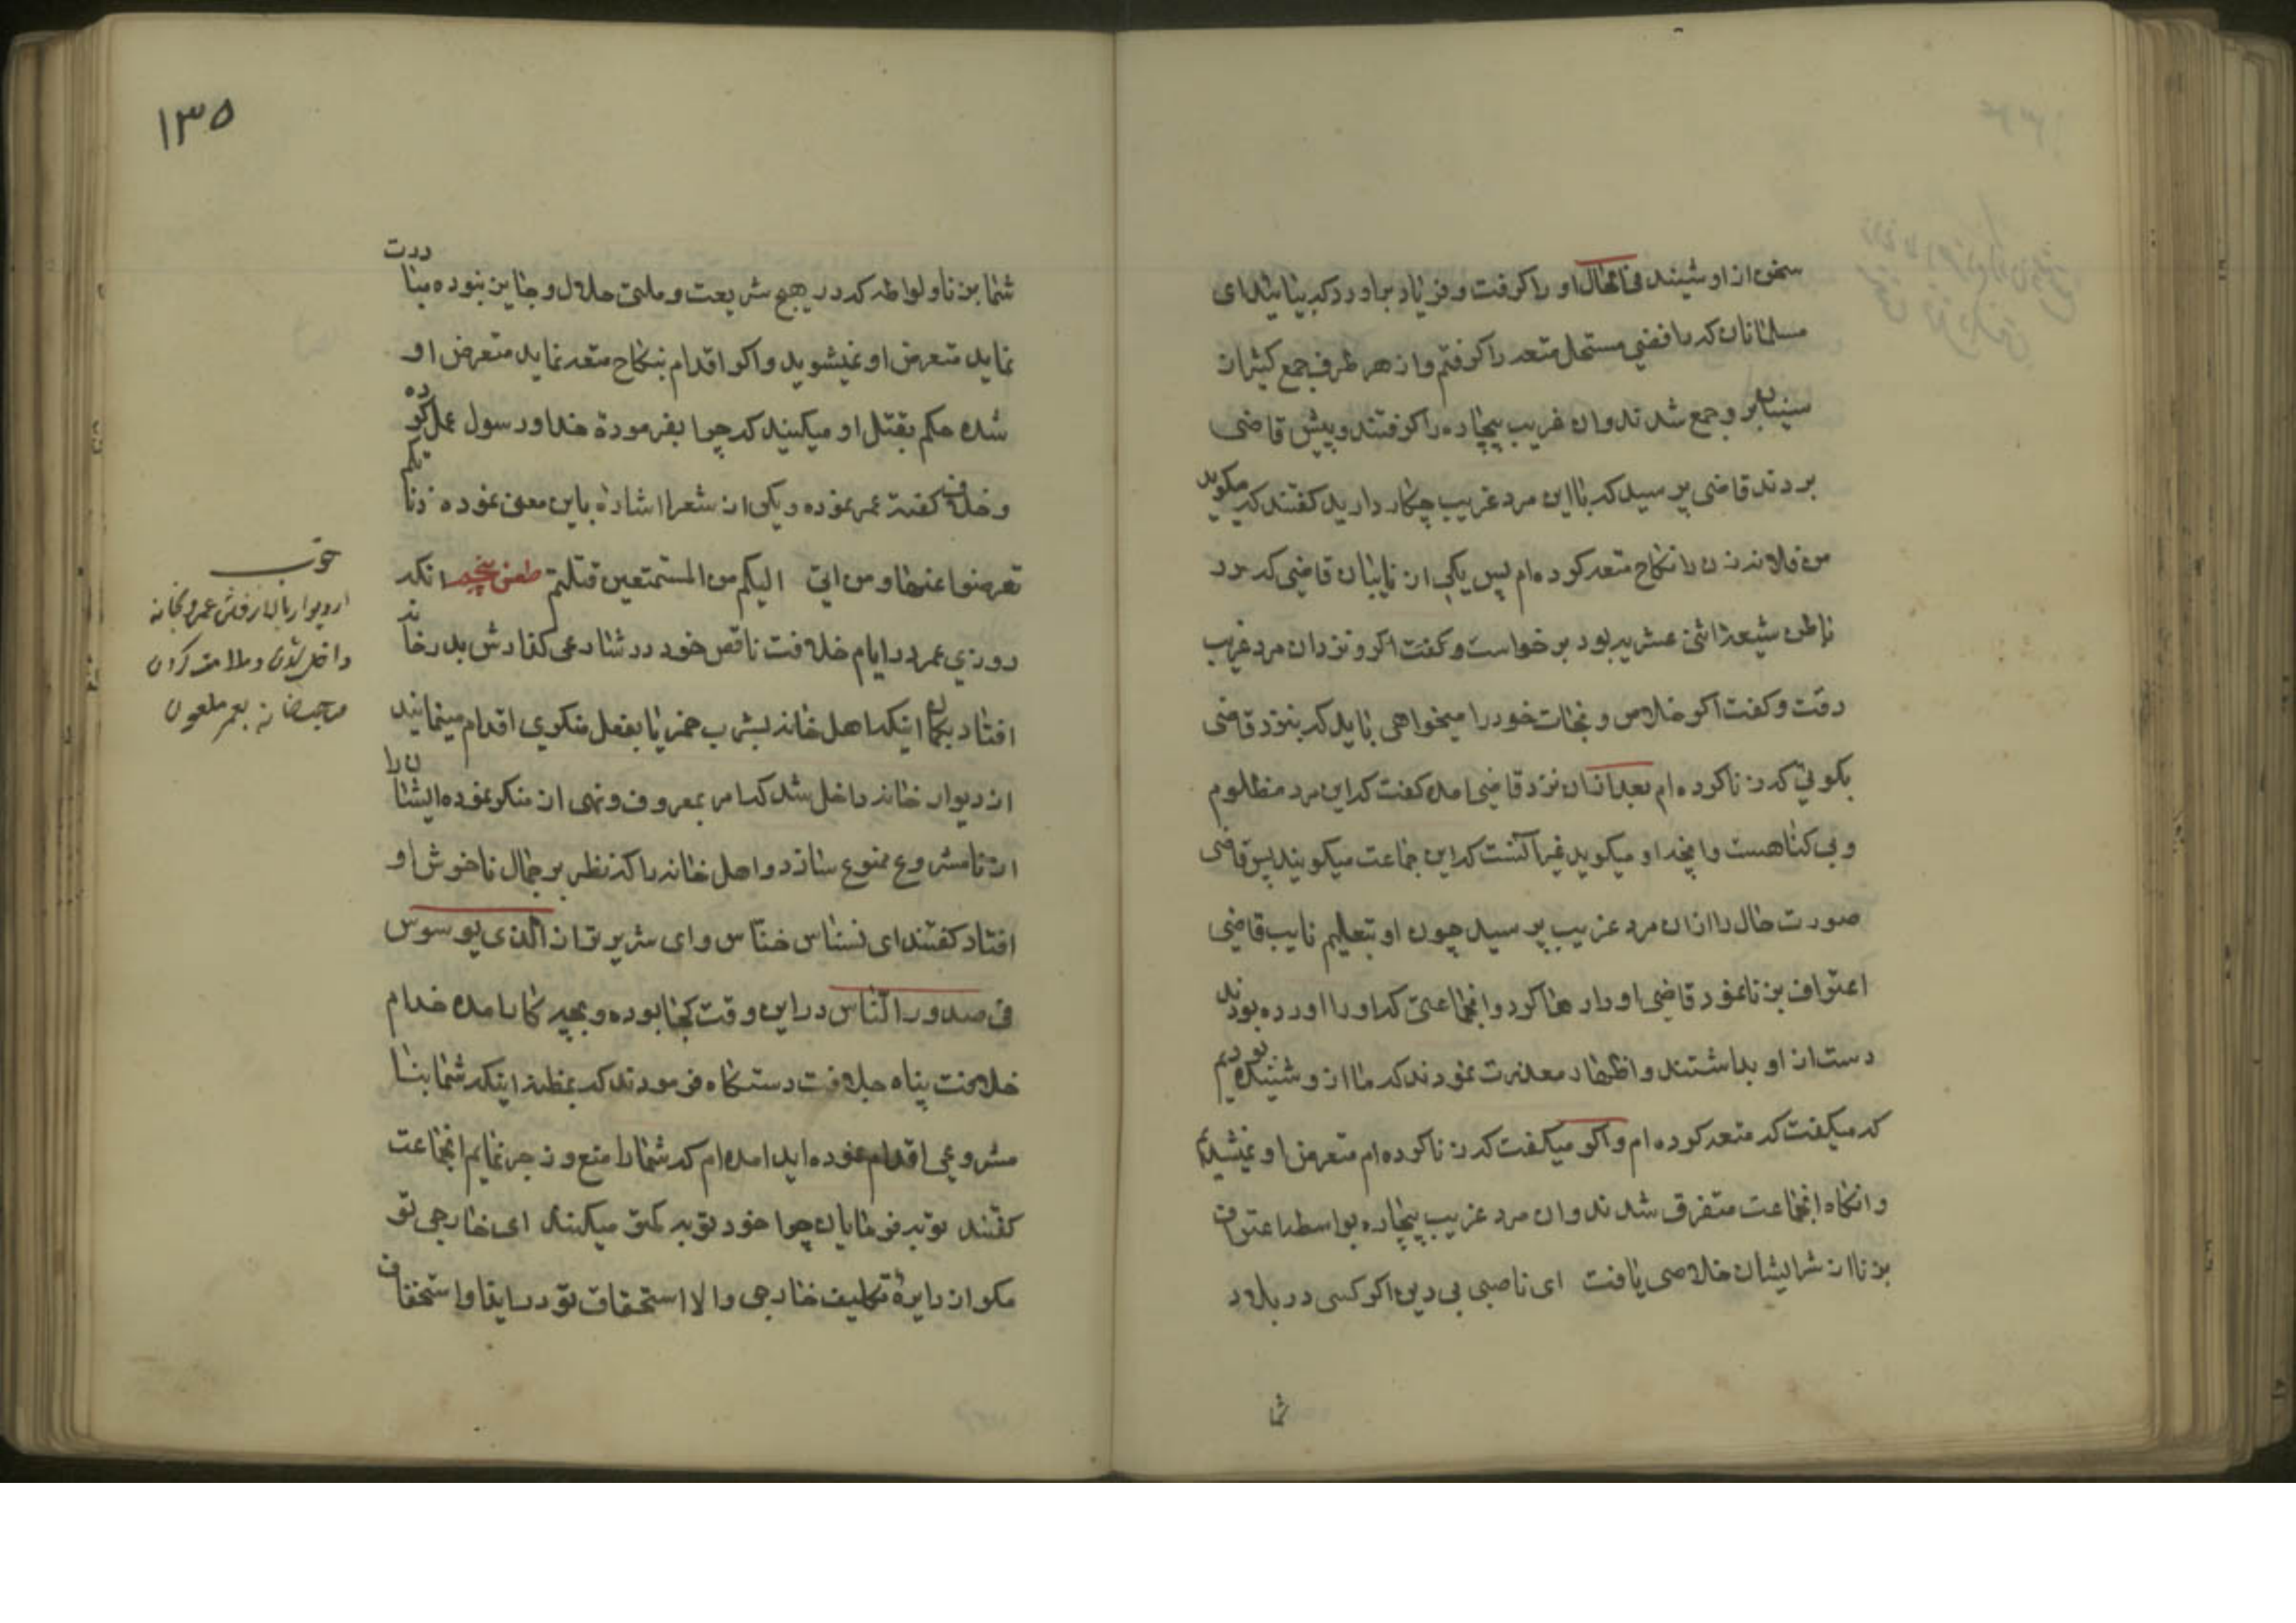 سخن از او شنیدند فی الحال او را کرفت و فریاد براورد که بیائید ای
مسلمانان که رافضی مستحل متعه را کرفتم و از هر طرف جمع کثیر از
سنیان برو جمع شدند و ان غریب بیچاره را کرفتند و پیش قاضی
بردند قاضی پرسید که با این مرد غریب چکار دارید کفتند که میکوید
من فلانه زن را نکاح متعه کرده ام پس یکی از نایبان قاضی که در
باطن شیعهٔ اثنی عشریه بود برخواست و کفت اکر و نزد ان مرد غریب
رفت و کفت اکر خلاص و نجات خود را میخواهی باید که بنزد قاضی
بکوئی که زنا کرده ام بعد از ان نزد قاضی امده کفت که این مرد مظلوم
و بی کناهست و انچه او میکوید غیر آنست که این جماعت میکویند پس قاضی
صورت حال را از ان مرد غریب پرسید چون او بتعلیم نایب قاضی
اعتراف بزنا نمود قاضی او را رها کرد و انجماعتی که او را اورده بودند
دست از او بداشتند و اظهار معذرت نمودند که ما از و شنیده بودیم
که میکفت که متعه کرده ام و اکر میکفت که زنا کرده ام متعرض او نمیشدیم
و انکاه انجماعت متفرق شدند و ان مرد غریب بیچاره بواسطه اعتراف
بزنا از شر ایشان خلاصی یافت ای ناصبی بی دین اکر کسی در بلاد
شما
۱۳۵
شما بزنا و لواطه که در هیچ شریعت و ملتی حلال و جایز نبوده مبادرت
نماید متعرض او نمیشوید و اکر اقدام بنکاح متعه نماید متعرض او
شده حکم بقتل او میکنید که چرا بفرمودهٔ خدا و رسول عمل کرده
و خلاف کفتهٔ عمر نموده و یکی از شعرا اشاره باین معنی نموده زناکم
تعرضوا عنها و من اتی الیکم من المستمتعین قتلتم طعن پنجم انکه
روزی عمر در ایام خلافت ناقص خود در شنا رعی کذارش بدر خانه
افتاد بکمان اینکه اهل خانه بشرب خمر یا بفعل منکری اقدام مینمایند
از دیوار خانه داخل شد که امر بمعروف و نهی از منکر نموده ایشان را
از نامشروع ممنوع سازد و اهل خانه را که نظر بر جمال ناخوش او
افتاد کفتند ای نسناس خناس و ای شریرتر از الذی یوسوس
فی صدور الناس در این وقت کجا بوده و بچه کار امده خدام
خلافت پناه جلافت دستکاه فرمودند که بمظنهٔ اینکه شما بنا
مشروعی اقدام نموده اید امده ام که شما را منع و زجر نمایم انجماعت
کفتند توبه فرمایان چرا خود توبه کمتر میکنند ای خارجی تو
مکر از دایرهٔ تکلیف خارجی و الا استحقاق تو در ایذا و استخفاف
از دیوار بالا رفتن عمر و بخانه
داخل شدن و ملامت کردن
صاحبخانه بعمر ملعون